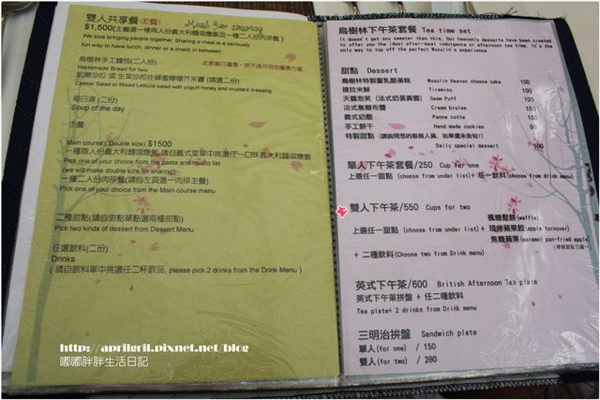 雙人共享餐(E餐)
Meal for sharing
$1,500(主食包含一種兩人份義大利麵或燉飯及一種二人份肉排餐)
We love bringing people together. Sharing a meal is a seriously
fun way to have lunch, dinner or a snack in between.
烏樹林手工麵包(二人份)
Handmade Bread for two
凱撒沙拉 或 生菜沙拉佐蜂蜜檸檬芥末醬 (請選二份)
Caesar Salad or Mixed Lettuce salad with yogurt honey and mustard dressing
每日湯(二份)
Soup of the day
主餐
Main course ( Double size) $1500
一種兩人份義大利麵或燉飯(請自義式菜單中挑選任一口味義大利麵或燉飯
Pick one of your choice from the pasta and risotto list
(we will make double size for sharing)
一種二人份肉排餐(請自左頁選一肉排主餐)
Pick one of your choice from the Main course menu
二種甜點(請自甜點單點選兩種甜點)
Pick two kinds of dessert from Dessert Menu
任選飲料(二份)
Drinks
( 請自飲料單中挑選任二杯飲品, please pick 2 drinks from the Drink Menu )
http://aprilgril.pixnet.net/blog
嘟嘟胖胖生活日記
烏樹林下午茶套餐 Tea time set
It doesn't get any sweeter than this. Our heavenly desserts have been created
to offer you the ideal after-meal indulgence or afternoon tea time. It's the
only way to top off the perfect Wusulin's experience
甜點 Dessert
烏樹林特製重乳酪蛋糕 Wusulin Heaven cheese cake 100
提拉米蘇 Tiramisu 100
天鵝泡芙 (法式奶蛋黃醬) Swan Puff 100
法式焦糖布蕾 Cream brulee 100
義式奶酪 Panna cotta 100
手工餅干 Hand made cookies 80
特製甜點 (請詢問您的服務人員, 如果還未售完)
Daily special dessert 100
單人下午茶套餐/250 Cup for one
上選任一甜點 (choose from under list) + 任一飲料(choose from drink menu)
雙人下午茶/550 Cups for two
上選任一甜點 (choose from under list) +
鬆餅(waffle)
(apple turnover)
焦糖蘋果(caramel pan-fried apple)
+ 二種飲料(Choose two from Drink menu)
英式下午茶/600 British Afternoon Tea plate
英式下午茶拼盤 + 任二種飲料
Tea plate+ 2 drinks from Drink menu
三明治拼盤 Sandwich plate
單人(for one) / 150
雙人(for two) / 280